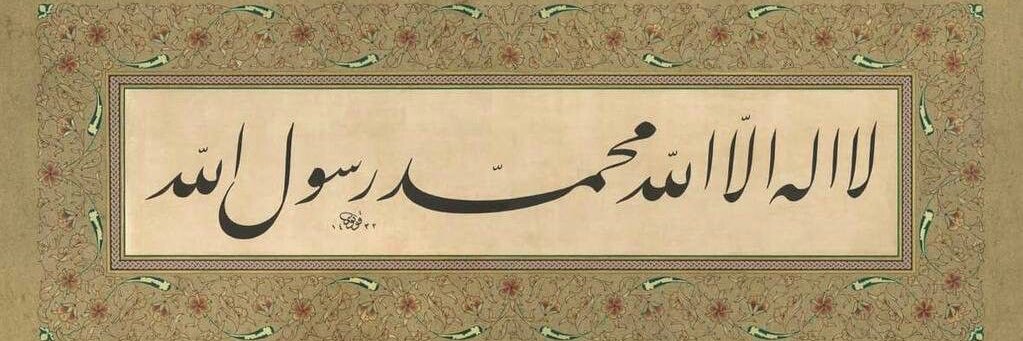 لا اله الّا اللّه محمّد رسول اللّه
١٤٣٢